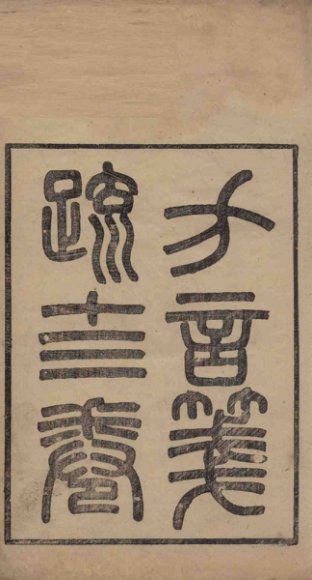 方言箋
疏十三卷